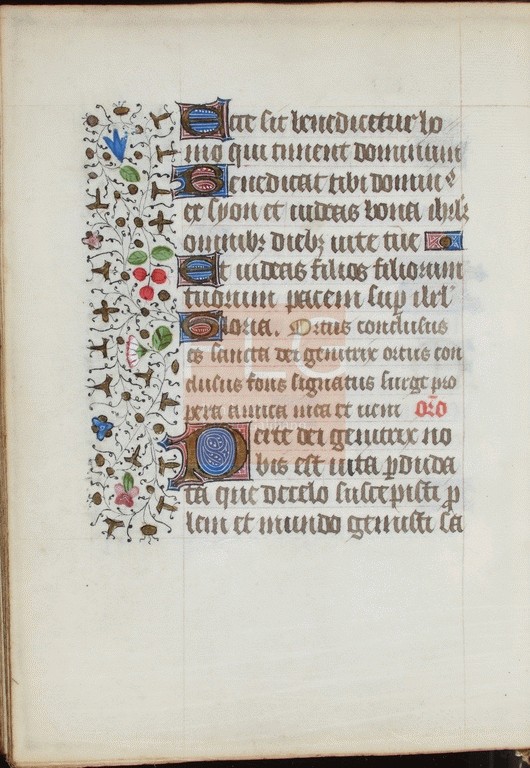 Ecce sic benedicetur ho
mo qui timent dominum
Benedicat tibi domin9
ex syon et uideas bona ihrlz
omnibz diebz uite tue
Et uideas filios filiorum
tuorum pacem sup isrl'
Gloria. Ortus conclusus
es sancta dei genitrix ortus con
clusus fons signatus surge pro
pera amica mea et ueni oro
Per te dei genitrix no
bis est uita perdita
ta que de celo suscepisti p
lem et mundo genuisti sa